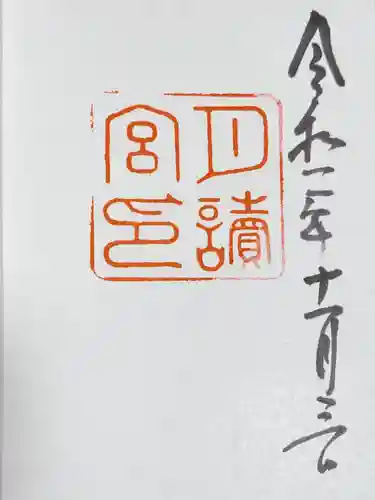 令和二年十一月三日
月讀
宮印